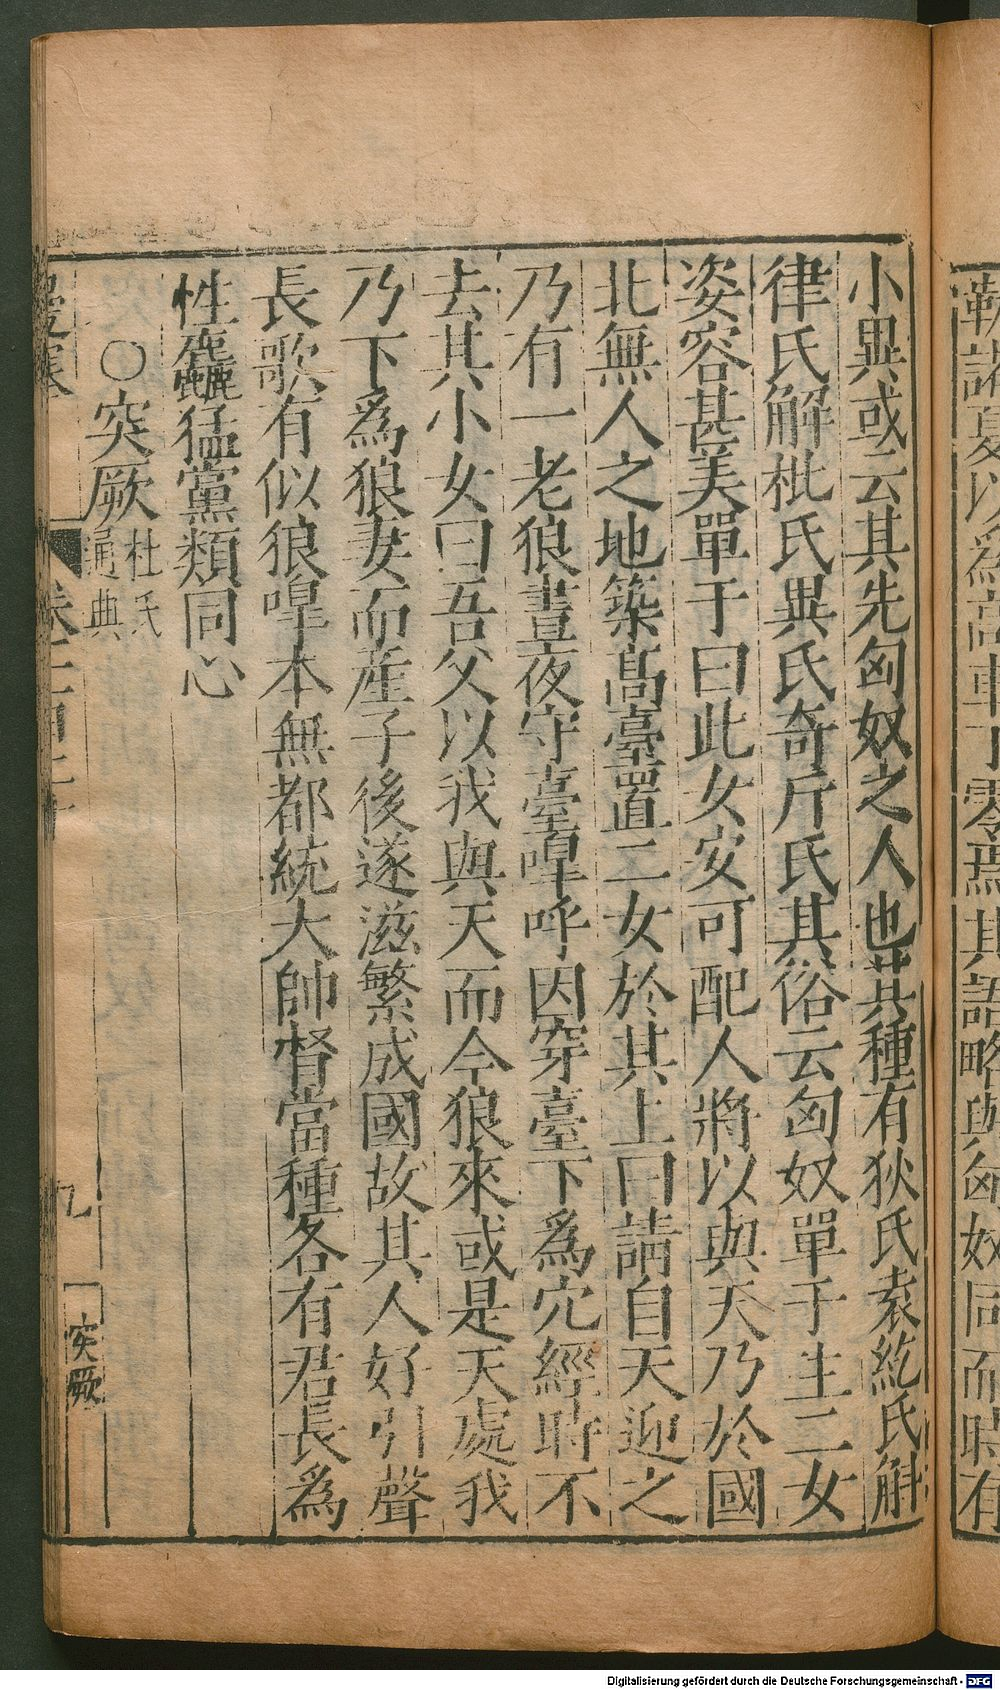 勒諸夏以爲高車丁零焉其語略與匈奴同而時有
小異或云其先匈奴之人也其種有狄氏袁紇氏斛
律氏解枇氏異氏奇斤氏其俗云匈奴單于生二女
姿容甚美單于曰此女安可配人將以與天乃於國
北無人之地築高臺置二女於其上曰請自天迎之
乃有一老狼晝夜守臺嘷呼因穿臺下爲穴經時不
去其小女曰吾父以我與天而今狼來或是天處我
乃下爲狼妻而産子後遂滋繁成國故其人好引聲
長歌有似狼嘷本無都統大帥督當種各有君長爲
性麤猛黨類同心
○突厥 杜氏通典
九
突厥
Digitalisierung gefördert durch die Deutsche Forschungsgemeinschaft - DFG